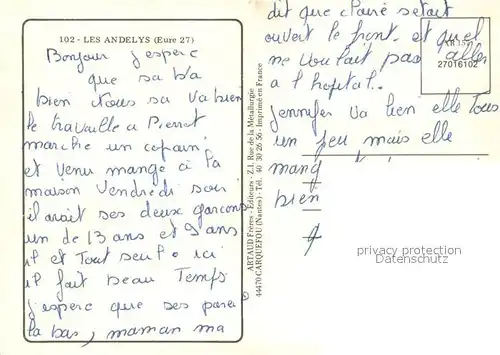 102 - LES ANDELYS (Eure 27)
Bonjour j'esperc
que sa va
bien Nous sa va bien
le travaille a Pierrot
marche un copain
et venu mangé à la
maison Vendredi soir
il avait ses deux garcons
un de 13 ans et 9 ans
il et tout seul. ici
il fait beau Temps
j'esperc que ses pareil
la bas, maman ma
dit que claire setait
ouvert le front et quel
ne voulait pas aller
a l'hopital..
jennifer va bien elle Tous
un peu mais elle
mang
bien
ARTAUD Frères - Editeurs - Z.I. Rue de la Métallurgie
44470 CARQUEFOU (Nantes) - Tél. 40 30 26 56 - Imprimé en France
27016102
privacy protection
Datenschutz